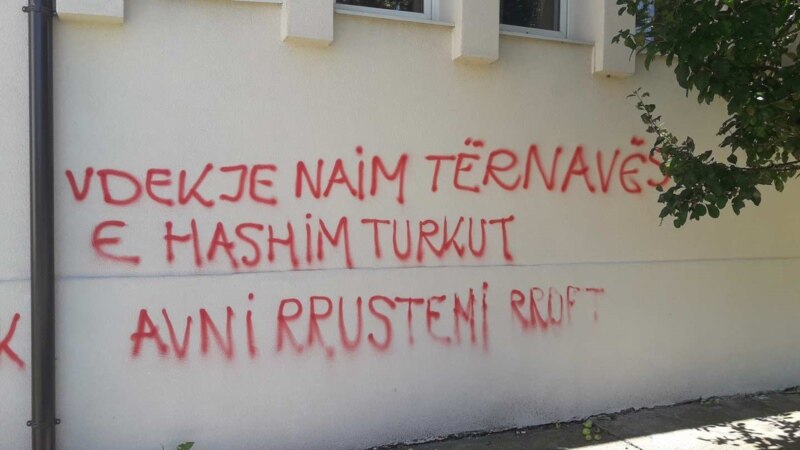 VDEKJE NAIM TËRNAVËS
E HASHIM TURKUT
K AVNI RRUSTEMI RROFT